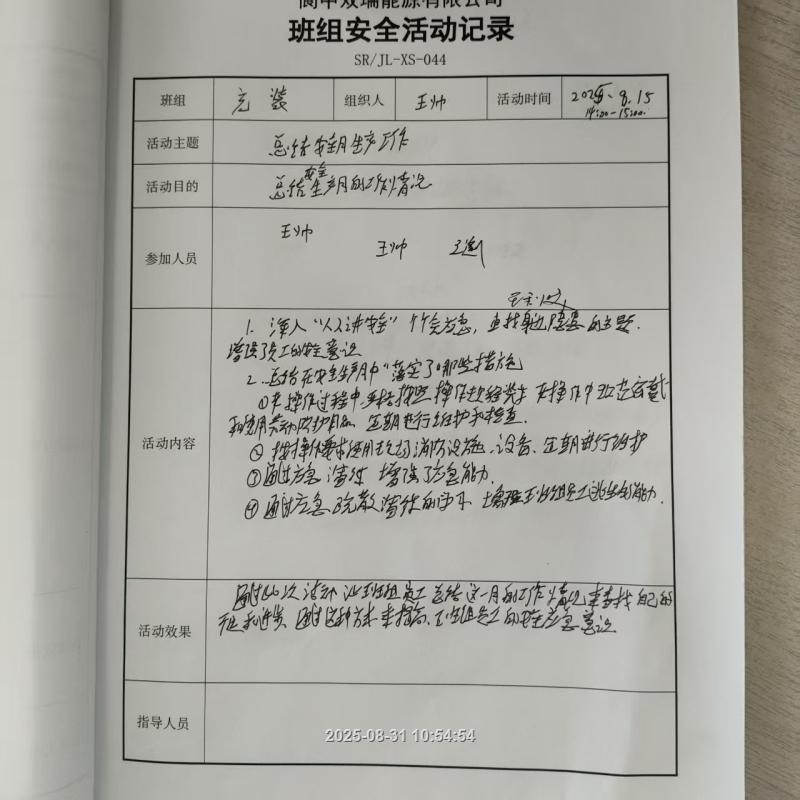 阆中双瑞能源有限公司
班组安全活动记录
SR/JL-XS-044
班组 充装 组织人 王帅 活动时间 2025.8.15
14:00-15:00
活动主题 总结安全月生产工作
活动目的 总结安全生产月的工作情况
参加人员 王帅 王帅
1. 深入“人人讲安全”个个会应急, 查找身边隐患的主题.
增强了员工的安全意识
2. 总结在安全生产月中“落实了”哪些措施
①在操作过程中严格按照操作规程 在操作中 穿戴
和使用劳动防护用品, 定期进行维护和检查.
②按操作要求使用现场消防设施、设备、定期进行维护
活动内容
③通过应急演练 增强了应急能力.
④通过应急疏散演练的 班组员工逃生的能力.
通过此次活动让班组员工总结这一月的工作情况来查找自己的
活动效果
通过这种方式来提高班组员工的安全应急意识
指导人员
2025-08-31 10:54:54